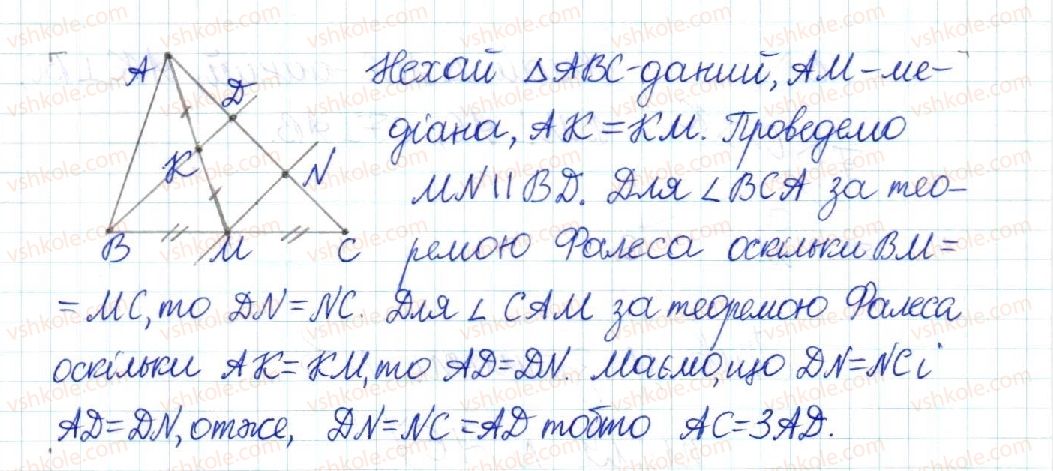 Нехай △ABC-даний, AM-ме-
діана, AK=KM. Проведемо
MN||BD. Для ∠BCA за тео-
ремою Фалеса оскільки BM=
=MC, то DN=NC. Для ∠CAM за теоремою Фалеса
оскільки AK=KM, то AD=DN. Маємо, що DN=NC і
AD=DN, отже, DN=NC=AD тобто AC=3AD.
A
D
K
N
B
M
C
vshkole.com